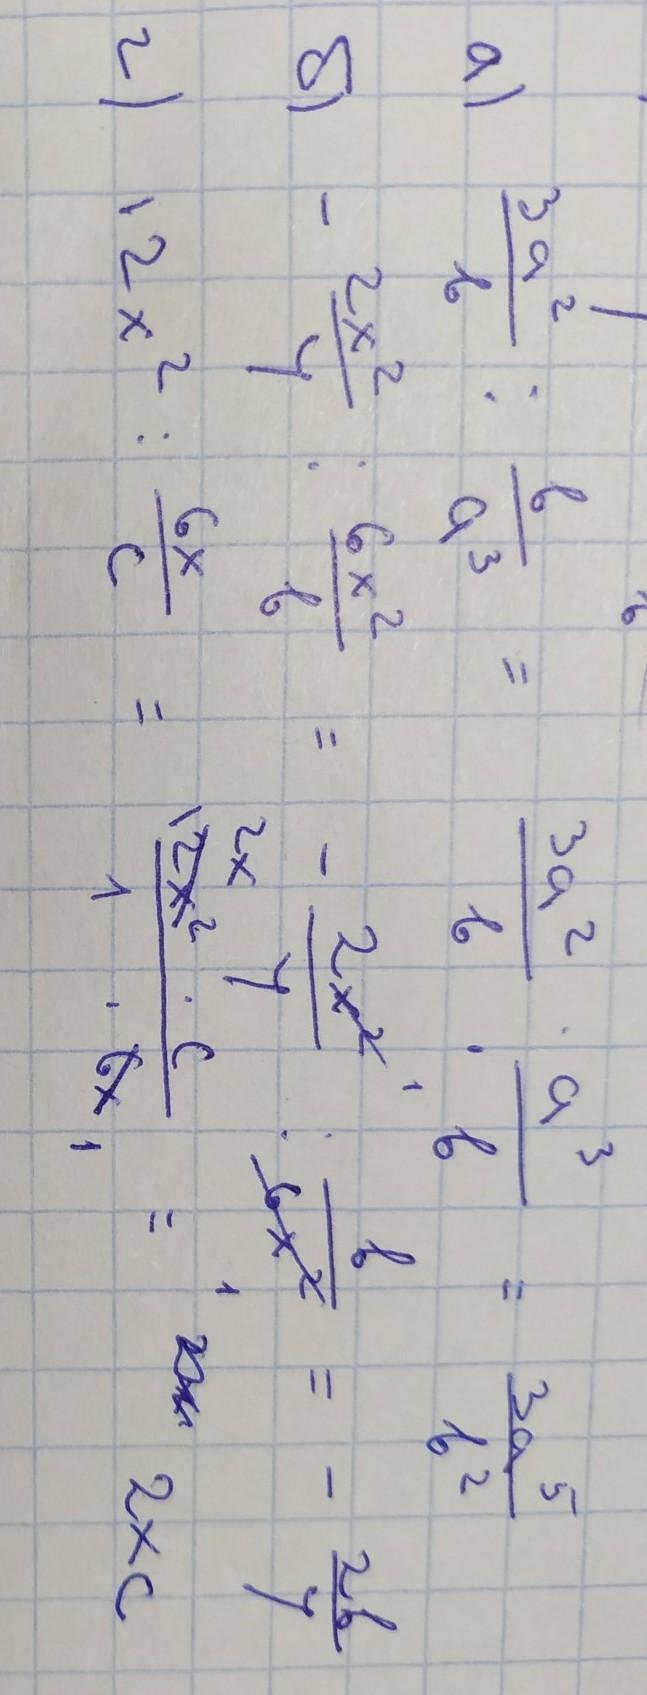 а) 3a²/b : b/a³ = 3a²/b · a³/b = 3a⁵/b²
б) - 2x²/y : 6x²/b = - 2x²/y : b/6x² = - 2b/y
г) 12x² : 6x/c = 12x² · c / 1 · 6x = 2xc